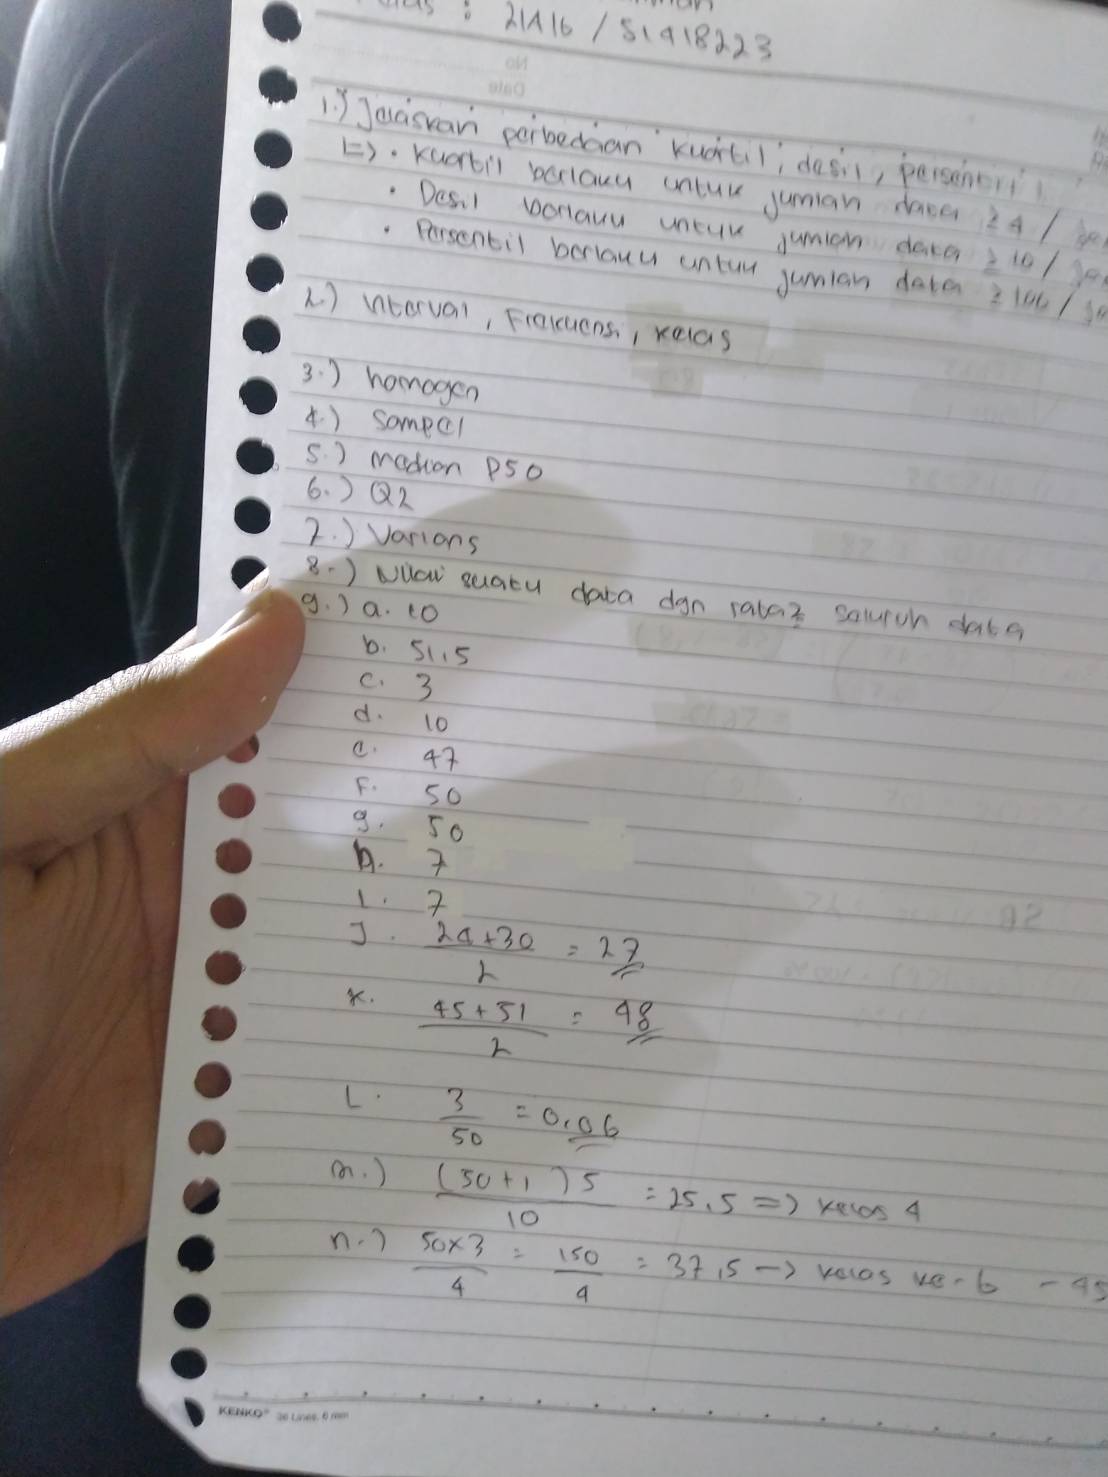 : 21A16 / 51418223
No
Date
1.) Jelaskan perbedaan kuartil, desil, persentil
=> • Kuartil berlaku untuk jumlah data ≥ 4 /
• Desil berlaku untuk jumlah data ≥ 10 /
• Persentil berlaku untuk jumlah data ≥ 100 /
2.) interval, Frekuensi, kelas
3.) homogen
4.) Sampel
5.) median P50
6.) Q2
7.) Varians
8.) Nilai suatu data dgn rata2 seluruh data
9.) a. 10
b. 51,5
c. 3
d. 10
e. 47
F. 50
g. 50
h. 7
i. 7
J. 24+30 / 2 = 27
k. 45+51 / 2 = 48
L. 3 / 50 = 0,06
m.) (50+1)5 / 10 = 25,5 => kelas 4
n.) 50x3 / 4 = 150 / 4 = 37,5 -> kelas ke-6 - 45
KENKO 26 Lines, 6 mm